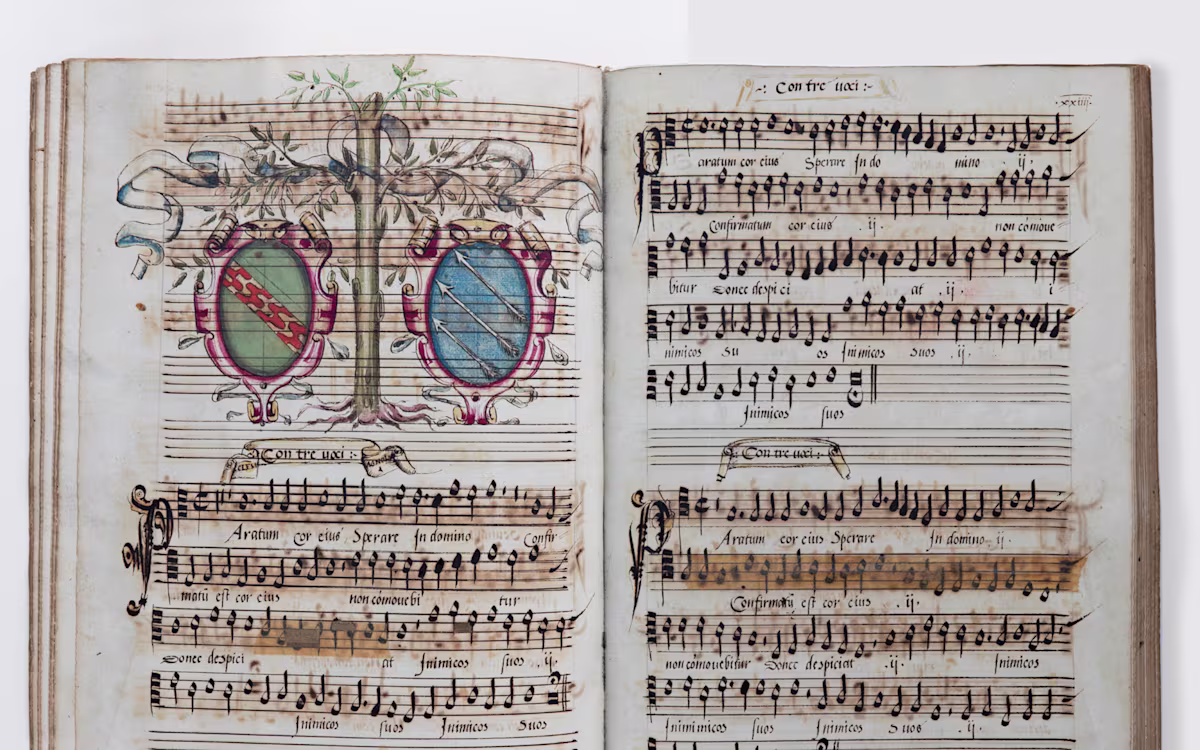 Con tre voci
Aratum cor eius Sperare In domino Confir
matū est cor eius non comovebi tur
Donec despici at Inimicos suos ij.
Inimicos suos Inimicos Suos
-: Con tre voci :-
xxiiij.
aratum cor eius Sperare In do mino ij
Confirmatum cor eius .ij. non cōmove
bitur Donec despici at .ij. i
nimicos Su os Inimicos Suos .ij.
Inimicos suos
Con tre voci :-
Aratum cor eius Sperare In domino .ij.
Confirmatū est cor eius .ij.
non cōmovebitur Donec despiciat .ij. Inimicos
Inimimicos suos Inimicos Suos .ij.